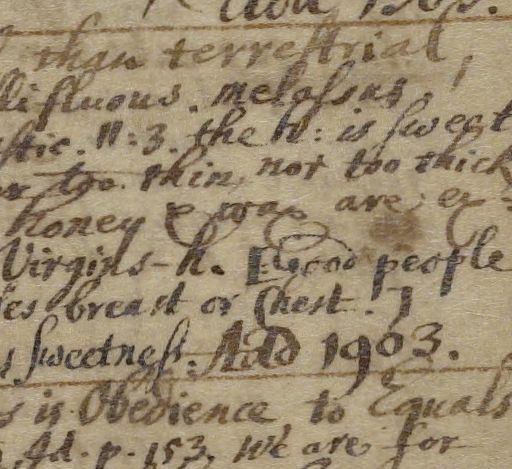 Add 1903.
than terrestrial,
llifluous. melassus,
stic. n: 3. the h: is sweet
too thin, nor too thick
honey & wax are ex=
Virgins-h. [Good people
breast or Chest.]
sweetness. Add 1903.
is Obedience to Equals
Id. p. 153. We are for